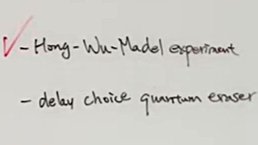 - Hong-Wu-Madel experiment
- delay choice quantum eraser